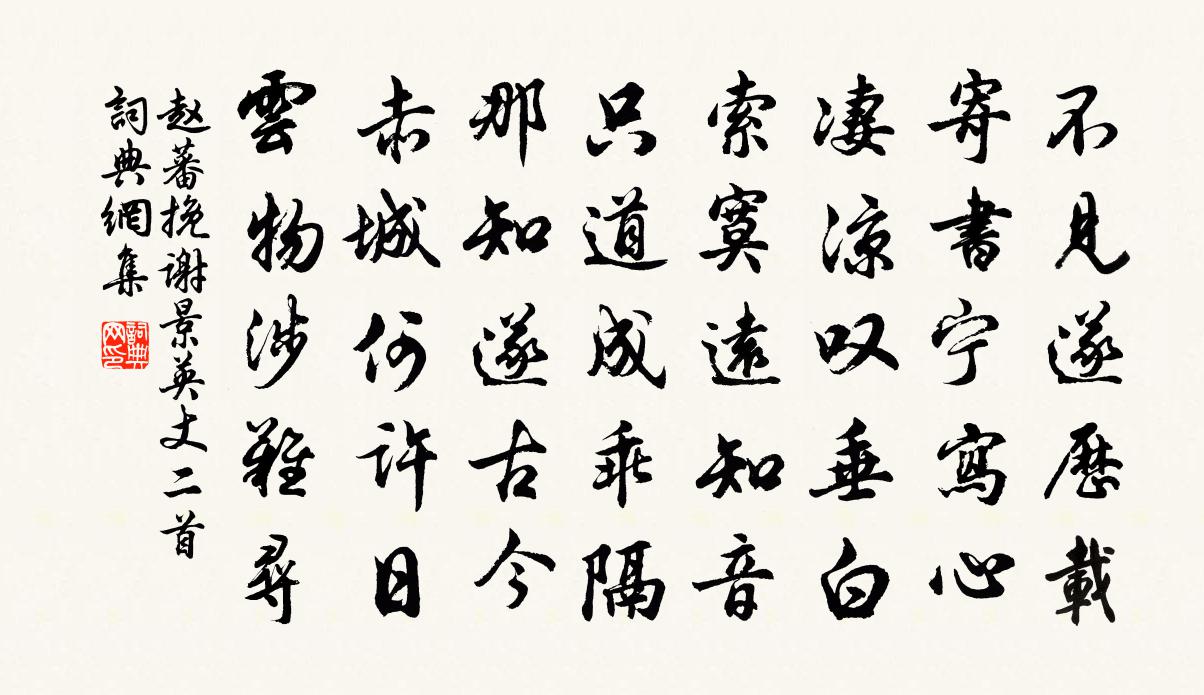 不見遂歷載
寄書宁寫心
凄涼叹垂白
索寞遠知音
只道成乖隔
那知遂古今
赤城何許日
雲物涉難尋
赵蕃挽谢景英丈二首
詞典網集
詞典网印